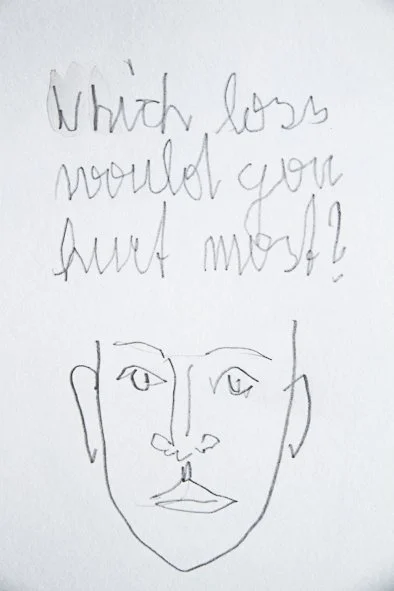 Which loss
would you
hurt most?